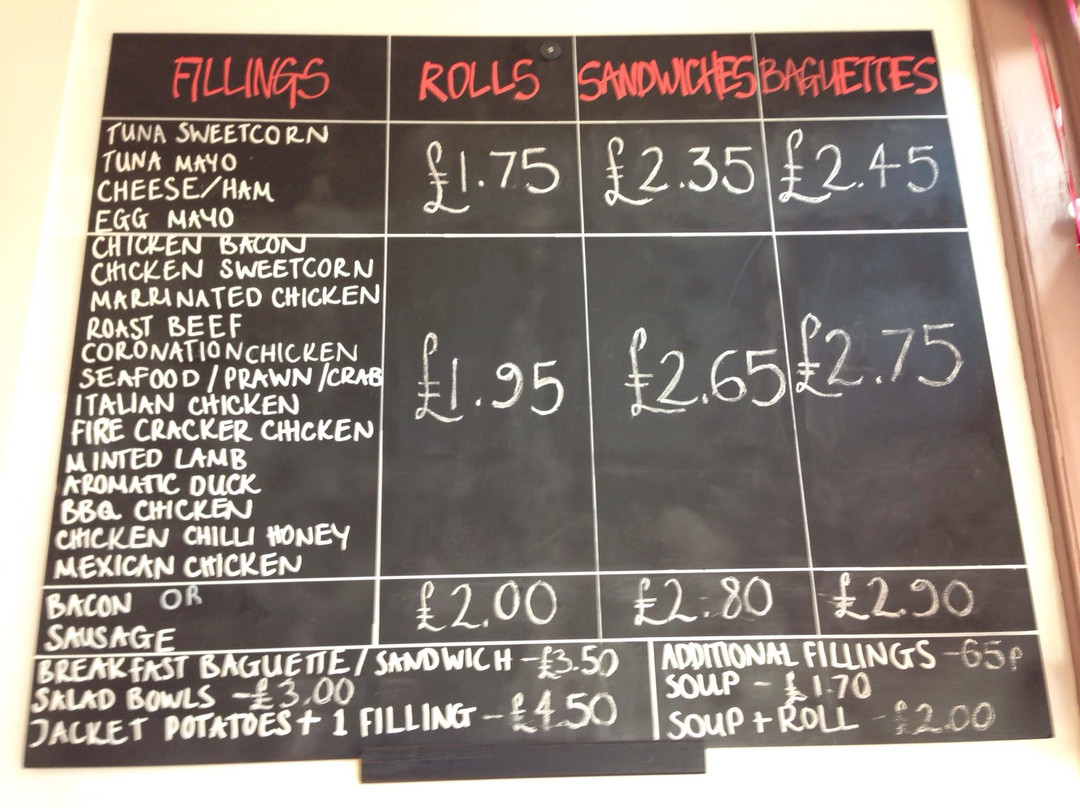 FILLINGS ROLLS SANDWICHES BAGUETTES
TUNA SWEETCORN
TUNA MAYO
CHEESE/HAM
EGG MAYO
£1.75 £2.35 £2.45
CHICKEN BACON
CHICKEN SWEETCORN
MARRINATED CHICKEN
ROAST BEEF
CORONATION CHICKEN
SEAFOOD/PRAWN/CRAB
ITALIAN CHICKEN
FIRE CRACKER CHICKEN
MINTED LAMB
AROMATIC DUCK
BBQ CHICKEN
CHICKEN CHILLI HONEY
MEXICAN CHICKEN
£1.95 £2.65 £2.75
BACON OR
SAUSAGE
£2.00 £2.80 £2.90
BREAKFAST BAGUETTE/SANDWICH -£3.50
SALAD BOWLS -£3.00
JACKET POTATOES + 1 FILLING -£4.50
ADDITIONAL FILLINGS -65p
SOUP - £1.70
SOUP + ROLL -£2.00